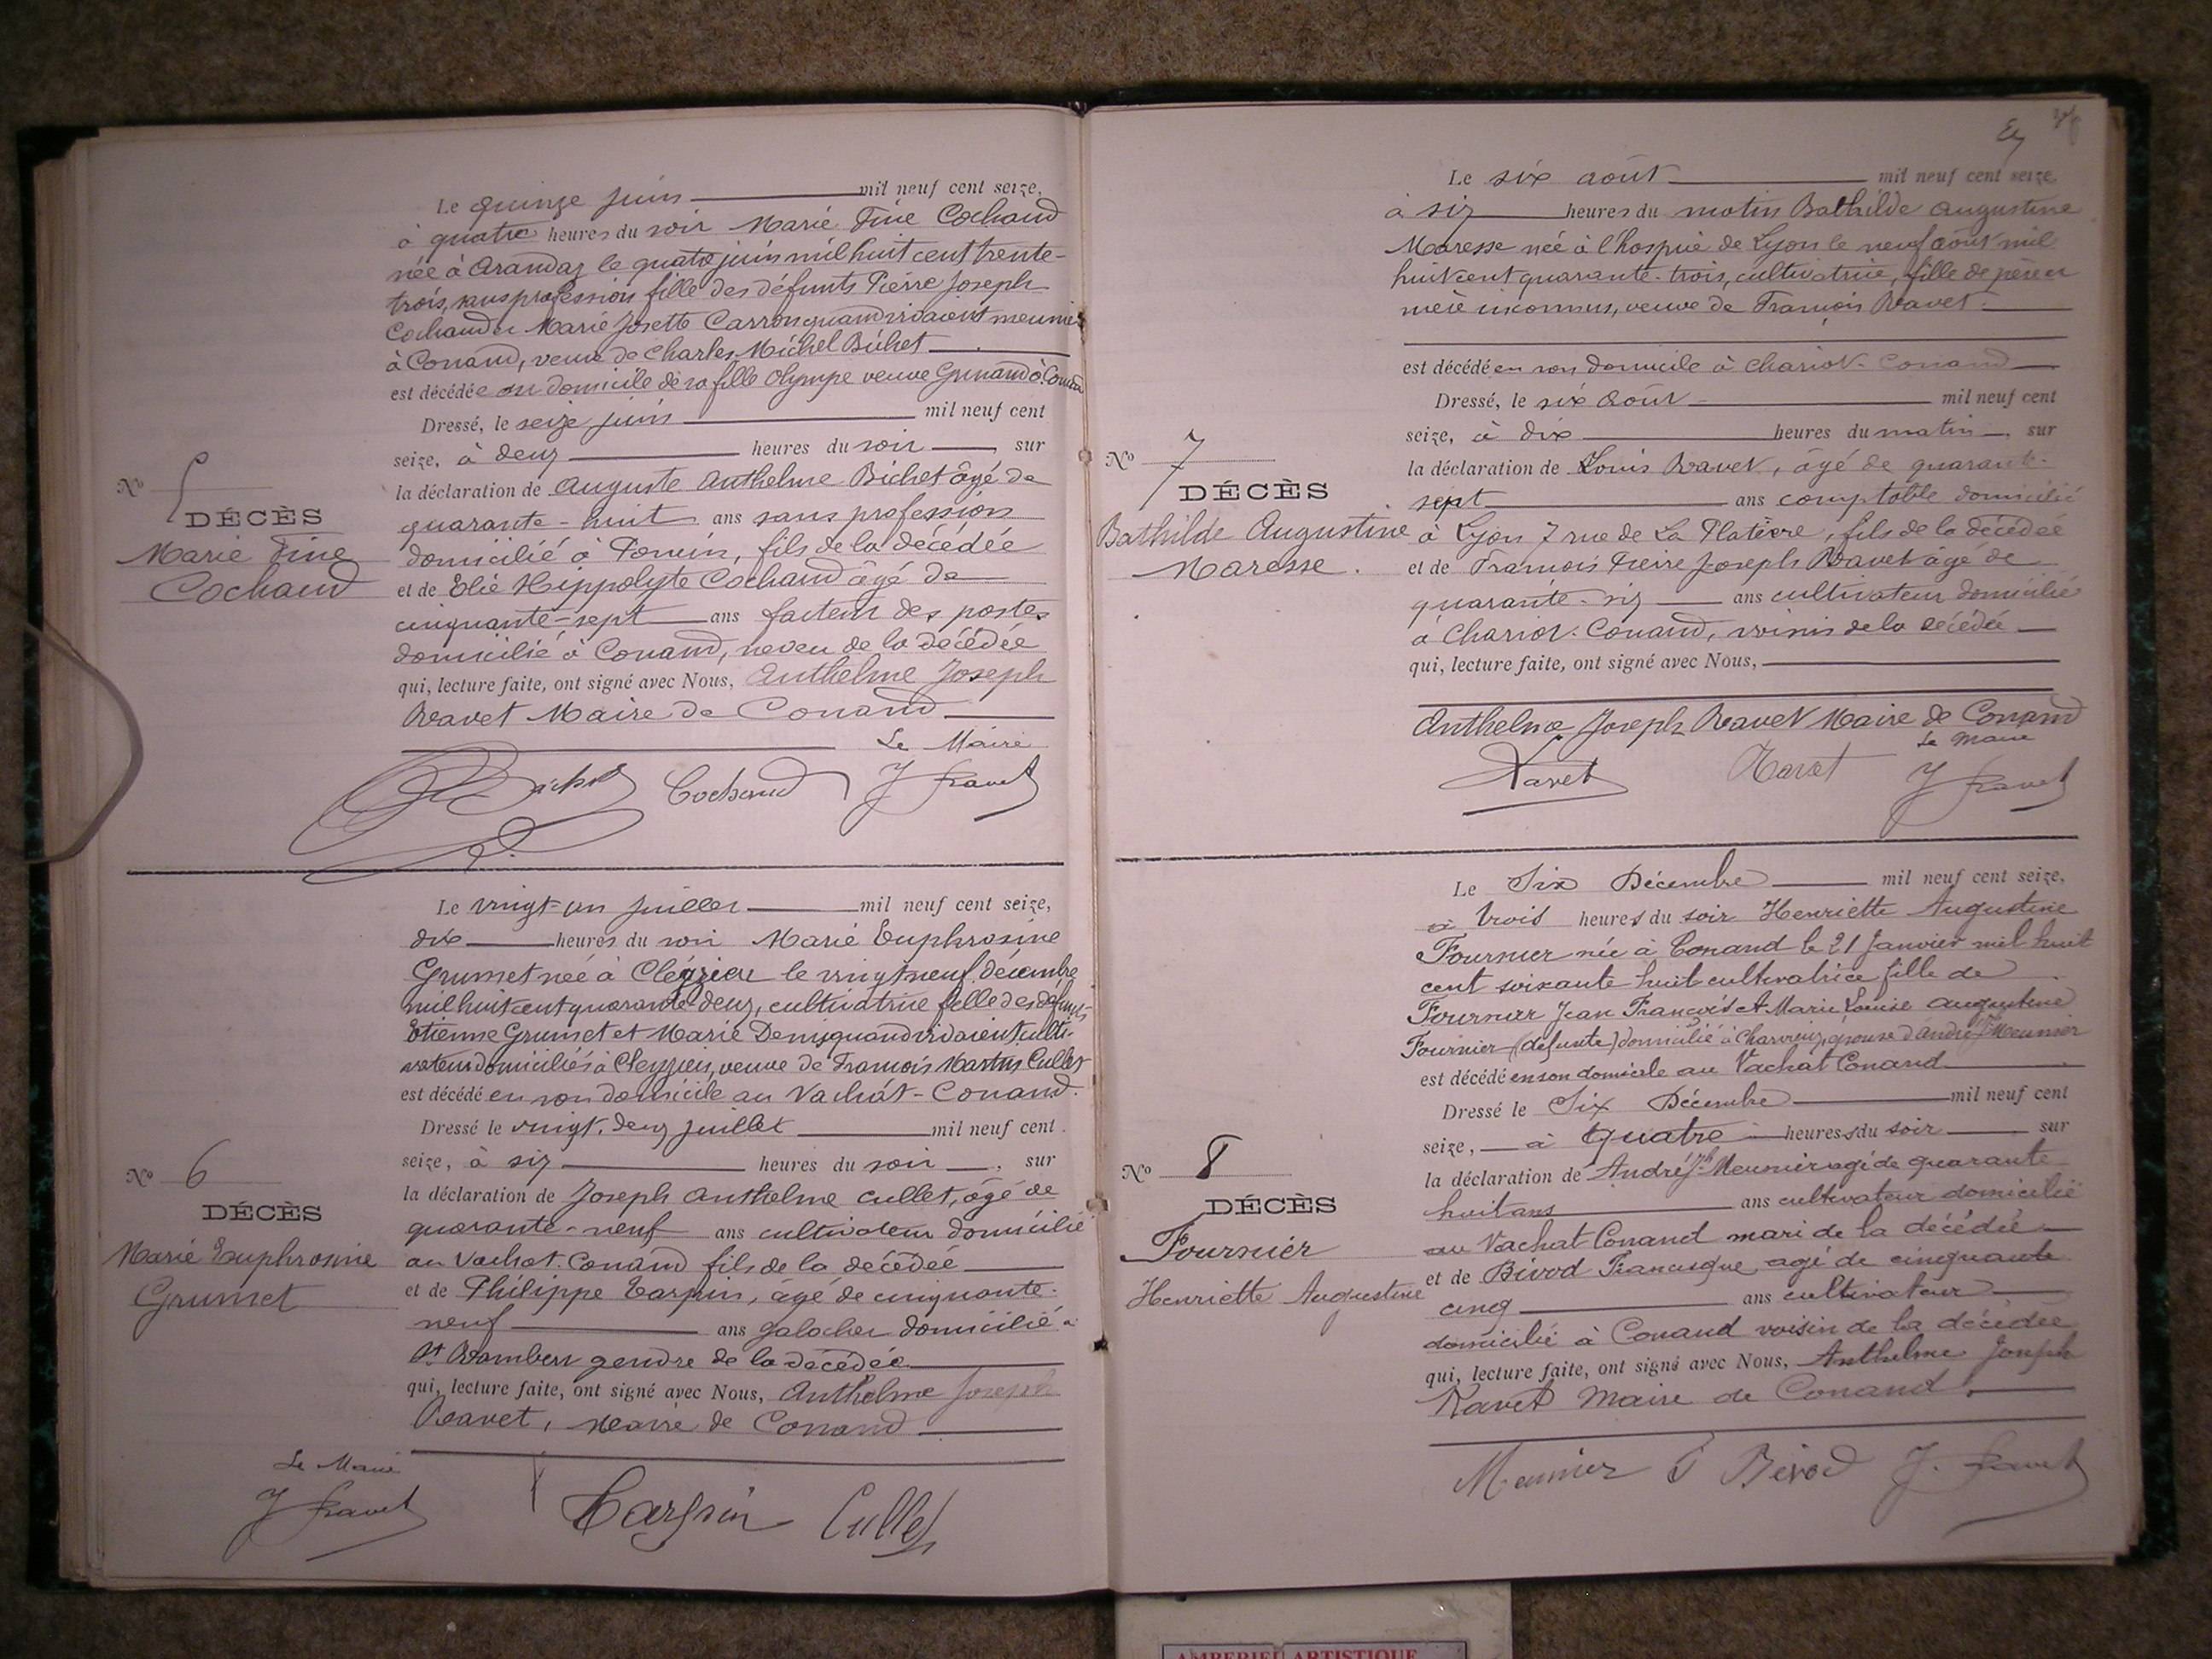 Le quinze juin mil neuf cent seize,
à quatre heures du soir Marie Fine Cochand
née à Arandaz le quatre juin mil huit cent trente-
trois, sans profession fille des défunts Pierre Joseph
Cochand et Marie Josette Carron quand vivaient meuniers
à Conand, veuve de Charles Michel Bichet
est décédée au domicile de sa fille Olympe veuve Grinand à Conand
Dressé, le seize juin mil neuf cent
seize, à deux heures du soir, sur
la déclaration de Auguste Anthelme Bichet âgé de
quarante-huit ans sans profession
domicilié à Poncin, fils de la décédée
et de Elie Hippolyte Cochand âgé de
cinquante-sept ans facteur des postes
domicilié à Conand, neveu de la décédée
qui, lecture faite, ont signé avec Nous, Anthelme Joseph
Ravet Maire de Conand
Le Maire
Bichet Cochand J Ravet
No 5
DÉCÈS
Marie Fine
Cochand
Le vingt-un juillet mil neuf cent seize,
dix heures du soir Marie Euphrosine
Grumet née à Cleyzieu le vingt neuf décembre
mil huit cent quarante-deux, cultivatrice fille des défunts
Etienne Grumet et Marie Denis quand vivaient culti-
vateurs domiciliés à Cleyzieu, veuve de François Martin Cullet
est décédé en son domicile au Vachat-Conand.
Dressé le vingt-deux juillet mil neuf cent
seize, à six heures du soir, sur
la déclaration de Joseph Anthelme Cullet, âgé de
quarante-neuf ans cultivateur domicilié
au Vachat-Conand fils de la décédée
et de Philippe Tarpin, âgé de cinquante-
neuf ans galocher domicilié à
St Rambert gendre de la décédée
qui, lecture faite, ont signé avec Nous, Anthelme Joseph
Ravet, Maire de Conand
Le Maire
J Ravet Tarpin Cullet
No 6
DÉCÈS
Marie Euphrosine
Grumet
Le six août mil neuf cent seize,
à six heures du matin Bathilde Augustine
Maresse née à l'hospice de Lyon le neuf août mil
huit cent quarante-trois, cultivatrice, fille de père et
mère inconnus, veuve de François Ravet
est décédé en son domicile à Chariot-Conand
Dressé, le six août mil neuf cent
seize, à dix heures du matin, sur
la déclaration de Louis Ravet, âgé de quarante-
sept ans comptable domicilié
à Lyon 7 rue de La Platière, fils de la décédée
et de François Pierre Joseph Ravet âgé de
quarante-six ans cultivateur domicilié
à Chariot-Conand, voisin de la décédée
qui, lecture faite, ont signé avec Nous,
Anthelme Joseph Ravet Maire de Conand
Le Maire
Ravet Ravet J Ravet
No 7
DÉCÈS
Bathilde Augustine
Maresse.
Le Six Décembre mil neuf cent seize,
à trois heures du soir Henriette Augustine
Fournier née à Conand le 21 Janvier mil huit
cent soixante huit cultivatrice fille de
Fournier Jean François et Marie Louise Augustine
Fournier (defunte) domicilié à Charvieux, épouse d'André Jh Meunier
est décédé en son domicile au Vachat Conand
Dressé le Six Décembre mil neuf cent
seize, à quatre heures du soir sur
la déclaration de André Jh Meunier agé de quarante
huit ans ans cultivateur domicilié
au Vachat Conand mari de la décédée
et de Bivod Francisque agé de cinquante
cinq ans cultivateur
domicilié à Conand voisin de la décédée
qui, lecture faite, ont signé avec Nous, Anthelme Joseph
Ravet Maire de Conand.
Meunier F Bivod J. Ravet
No 8
DÉCÈS
Fournier
Henriette Augustine
AMBERIEU ARTISTIQUE